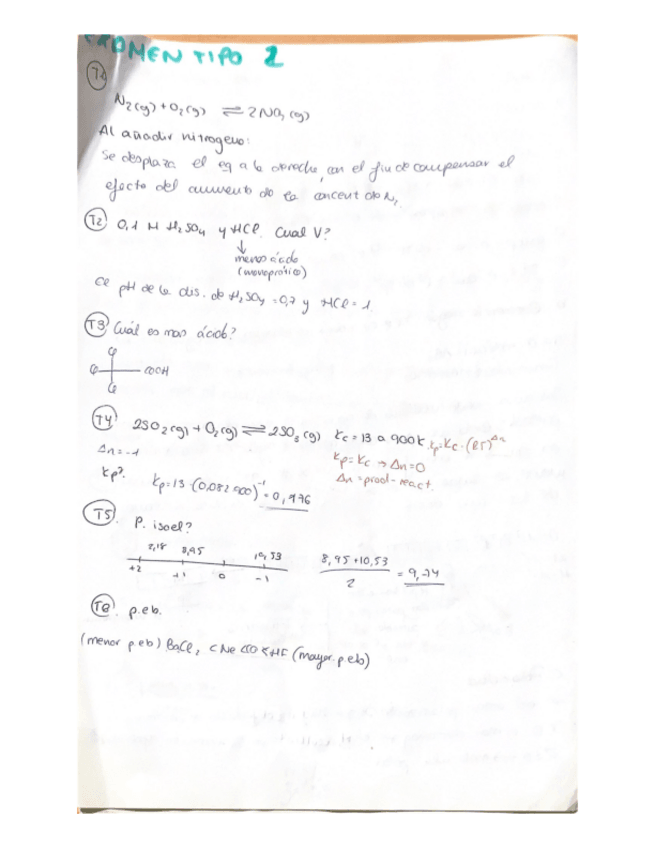 EXAMEN TIPO 2
T1
N2(g) + O2(g) ⇌ 2NO(g)
Al añadir nitrogeno:
Se desplaza el eq a la derecha, con el fin de compensar el
efecto del aumento de la concent de N2
T2 0,1 M H2SO4 y HCl. Cual V?
↓
menos ácido
(monoprótico)
el pH de la dis. de H2SO4 = 0,7 y HCl = 1.
T3 Cuál es mas ácido?
COOH
T4 2SO2(g) + O2(g) ⇌ 2SO3(g) Kc = 13 a 900K Kp=Kc·(RT)^Δn
Δn = -1
Kp = Kc → Δn = 0
Δn = prod - react.
Kp?. Kp = 13 · (0,082·900)^-1 = 0,176
T5. P. isoel?
2,18 8,95 10,53
+2 +1 0 -1
8,95 + 10,53 / 2 = 9,74
T6 p.eb.
(menor p eb) BaCl2 < Ne < CO < HF (mayor p eb)